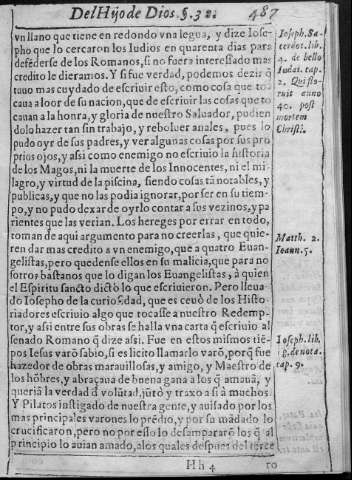 Del Hijo de Dios. §. 32. 487
vn llano que tiene en redondo vna legua, y dize Iose-
pho que lo cercaron los Iudios en quarenta dias para
defēderse de los Romanos, si no fuera interessado mas
credito le dieramos. Y si fue verdad, podemos dezir q̃
tuuo mas cuydado de escriuir esto, como cosa que to
caua a loor de su nacion, que de escriuir las cosas que to
cauan a la honra, y gloria de nuestro Saluador, pudien
dolo hazer tan sin trabajo, y reboluer anales, pues lo
pudo oyr de sus padres, y ver algunas cosas por sus pro
prios ojos, y assi como enemigo no escriuio la historia
de los Magos, ni la muerte de los Innocentes, ni el mi-
lagro, y virtud de la piscina, siendo cosas tā notables, y
publicas, y que no las podia ignorar, por ser en su tiem-
po, y no pudo dexar de oyrlo contar a sus vezinos, y pa
rientes que las verian. Los hereges por errar en todo,
toman de aqui argumento para no creerlas, que quie-
ren dar mas credito a vn enemigo, que a quatro Euan-
gelistas, pero quedense ellos en su malicia, que para no
sotros bastanos que lo digan los Euangelistas, à quien
el Espiritu sancto dictò lo que escriuieron. Pero lleua
do Iosepho de la curiosidad, que es ceuò de los Histo-
riadores escriuio algo que tocasse a nuestro Redemp-
tor, y assi entre sus obras se halla vna carta q̃ escriuio al
senado Romano q̃ dize assi. Fue en estos mismos tiē-
pos Iesus varō sabio, si es licito llamarlo varō, porq̃ fue
hazedor de obras marauillosas, y amigo, y Maestro de
los hōbres, y abraçaua de buena gana a los q̃ amauā, y
queriā la verdad d̃ volūtad, jūtò y traxo a si à muchos
Y Pilatos instigado de nuestra gente, y auisado por los
mas principales varones lo prēdio, y por su mādado lo
crucificaron, pero no por esso lo desampararō los q̃ al
principio lo auian amado, a los quales despues del terce
Hh 4 ro
Ioseph. Sa-
cerdot. lib.
4. de bello
Iudai. cap.
2. Qui flo-
ruit anno
40. post
mortem
Christi.
Matth. 2.
Ioann. 5.
Ioseph. lib.
cap. 9.